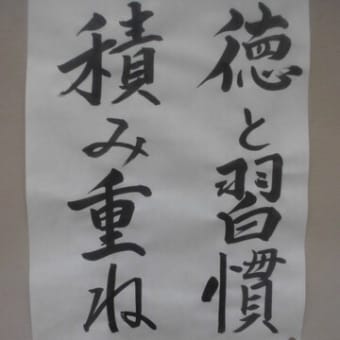 徳と習慣
積み重ね